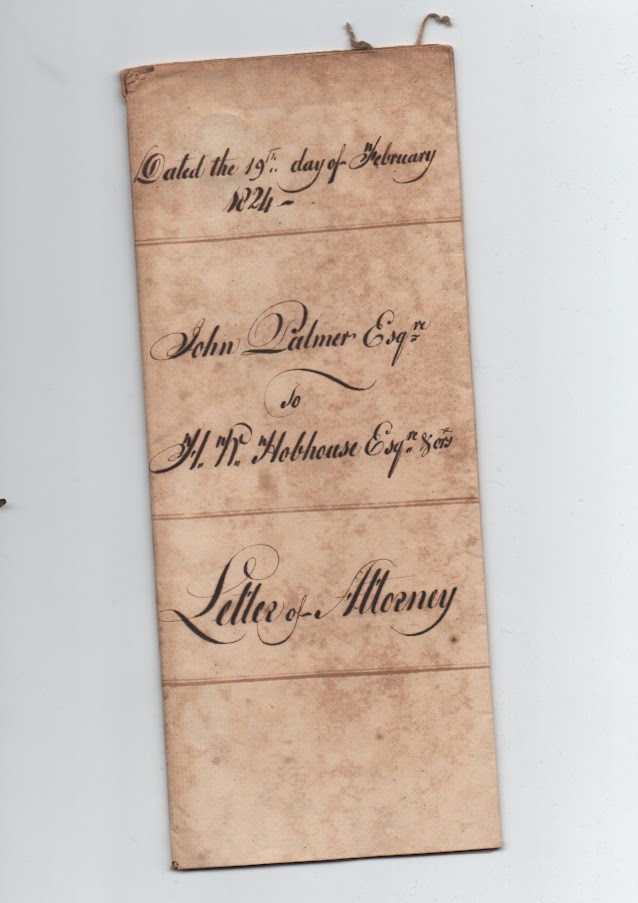 Dated the 19th day of February
1824 -
John Palmer Esqre
To
H. W. Hobhouse Esqre & ors
Letter of Attorney